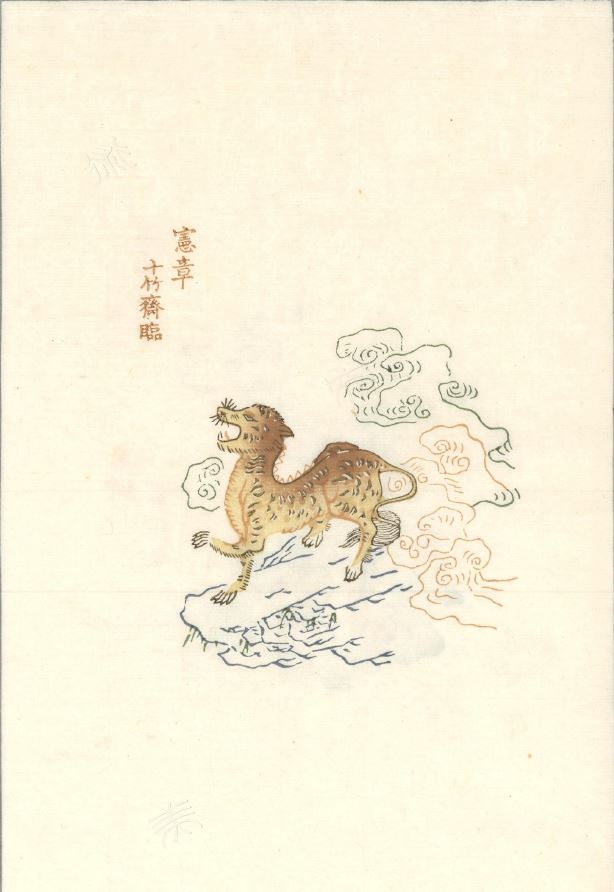 憲章
十竹齋臨